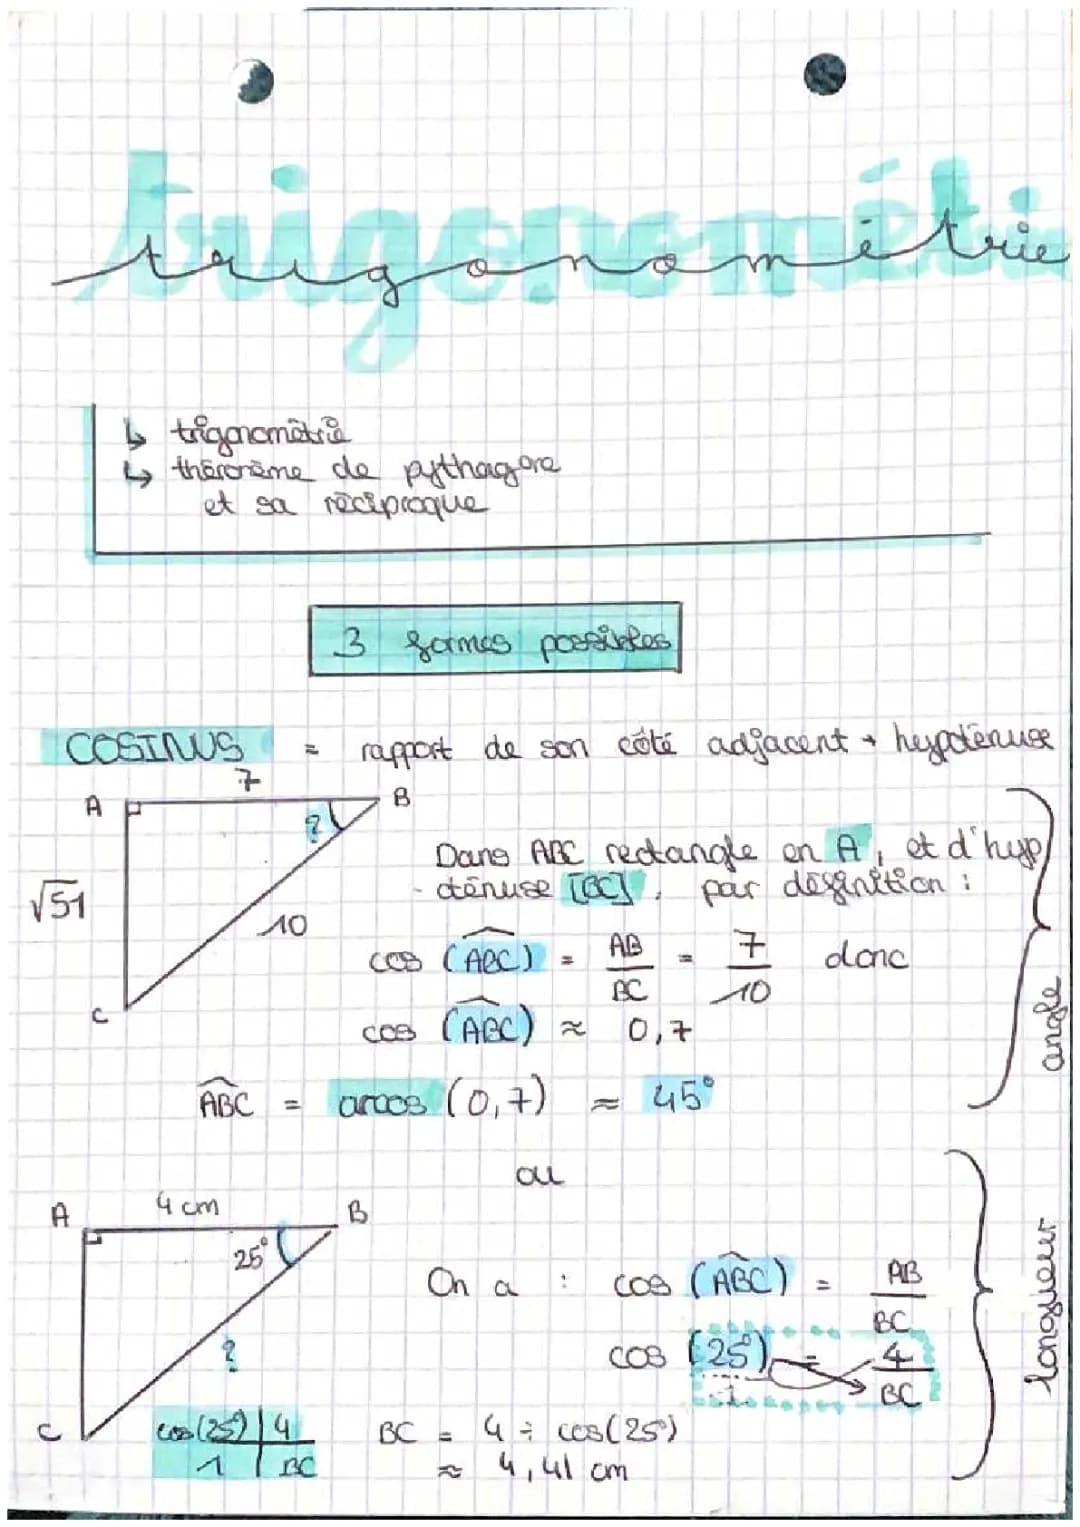 trigonométrie
trigonométrie
↳ trigonométrie
↳ théorème de pythagore
et sa réciproque
3 formes possibles
COSINUS = rapport de son côté adjacent + hypoténuse
7
A
B
?
√51
10
C
Dans ABC rectangle en A, et d'hyp
-oténuse [BC], par définition :
cos (ABC) = AB/BC = 7/10 donc
cos (ABC) ≈ 0,7
ABC = arcos (0,7) ≈ 45°
angle
ou
4 cm
A
B
25°
?
C
On a : cos (ABC) = AB/BC
cos (25°)/1 = 4/BC
cos(25°) | 4
1 | BC
BC = 4 ÷ cos(25°)
≈ 4,41 cm
longueur